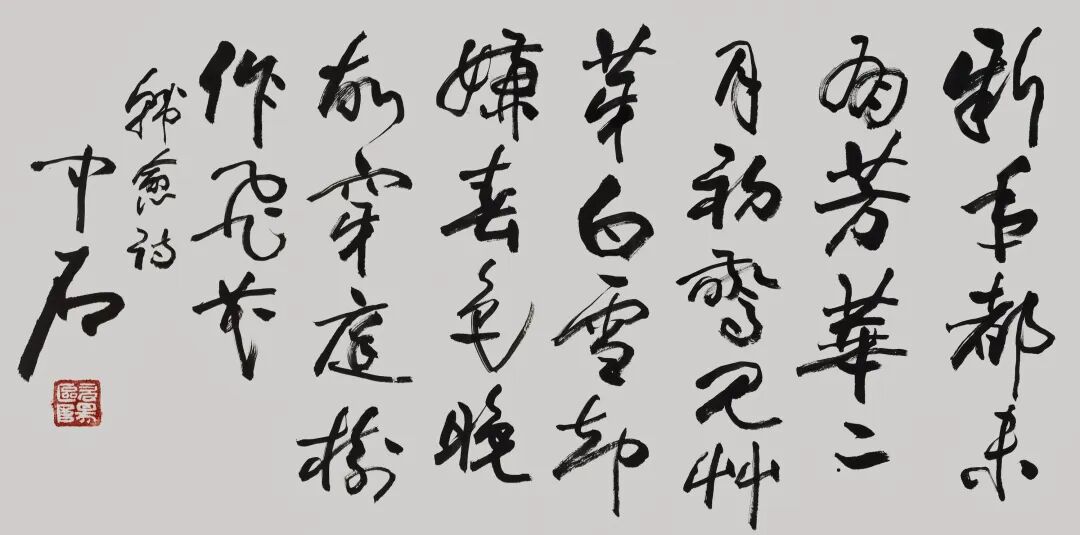 新年都未
有芳華二
月初驚見艸
芽白雪却
嫌春色晚
故穿庭樹
作飛花
韓愈诗
中石